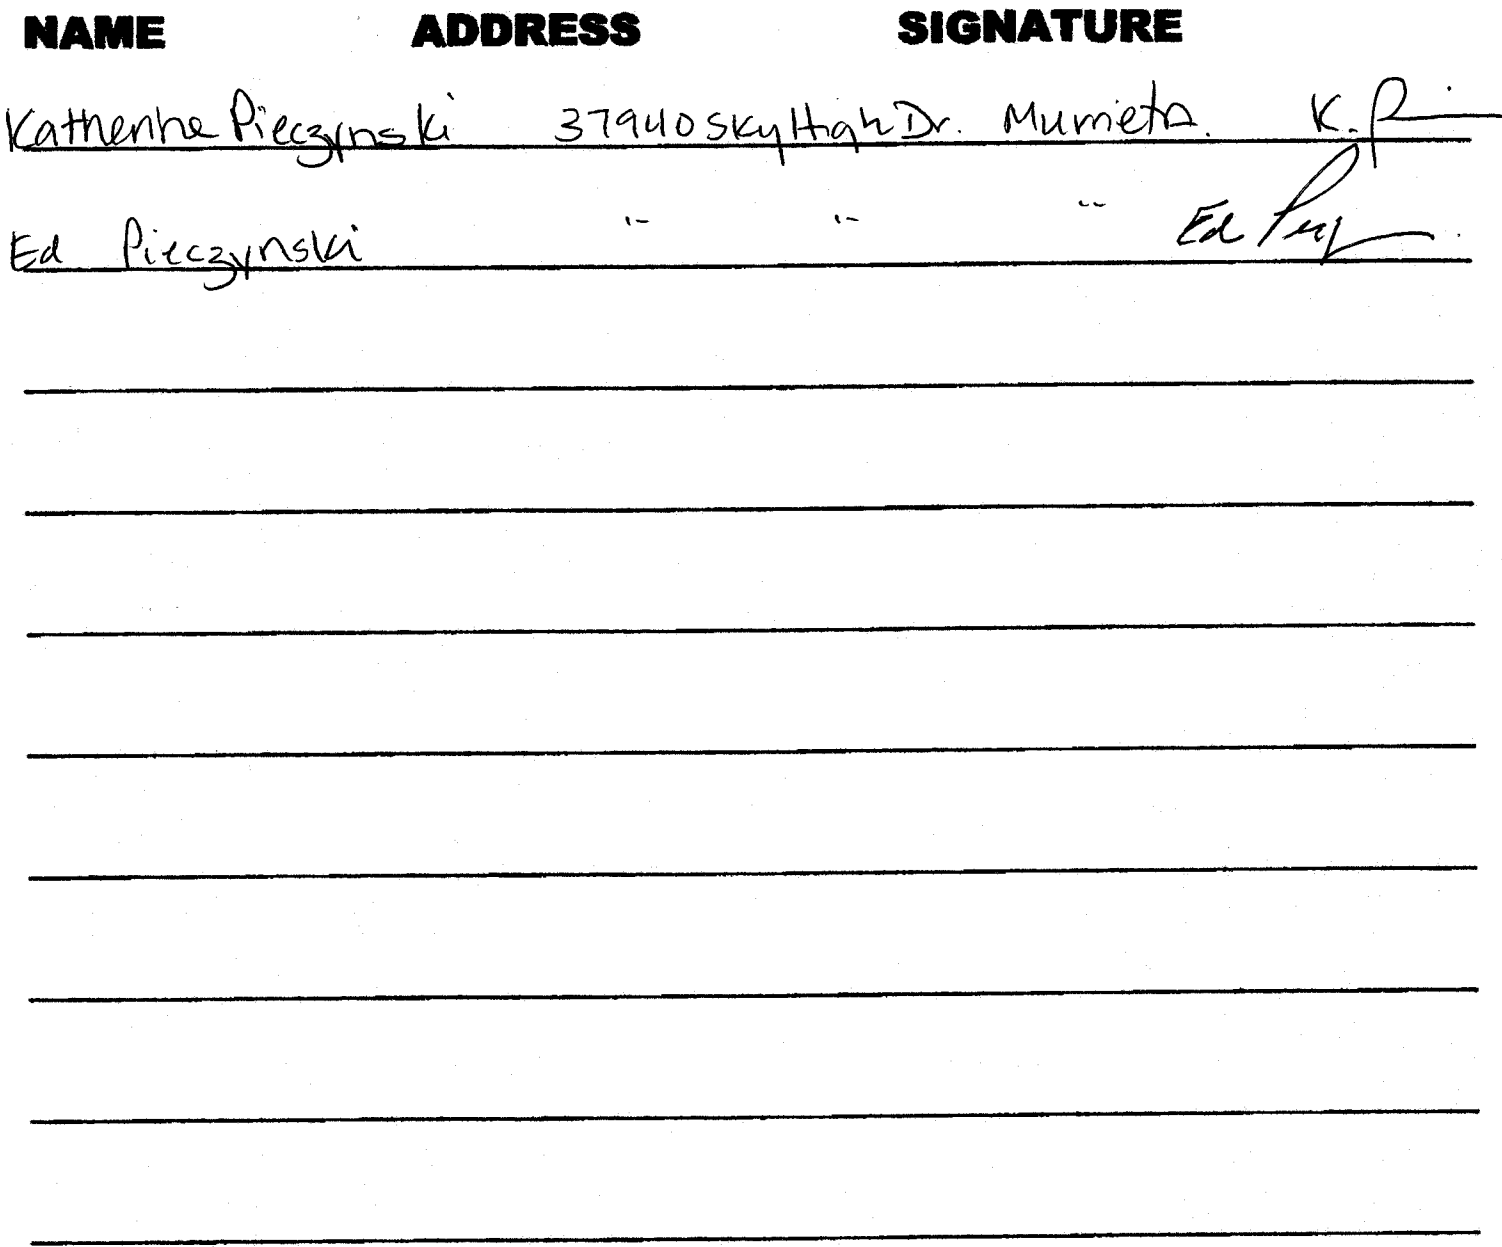 NAME ADDRESS SIGNATURE
Katherine Pieczynski 37940 Sky High Dr. Murrieta. K. P
Ed Pieczynski " " " Ed